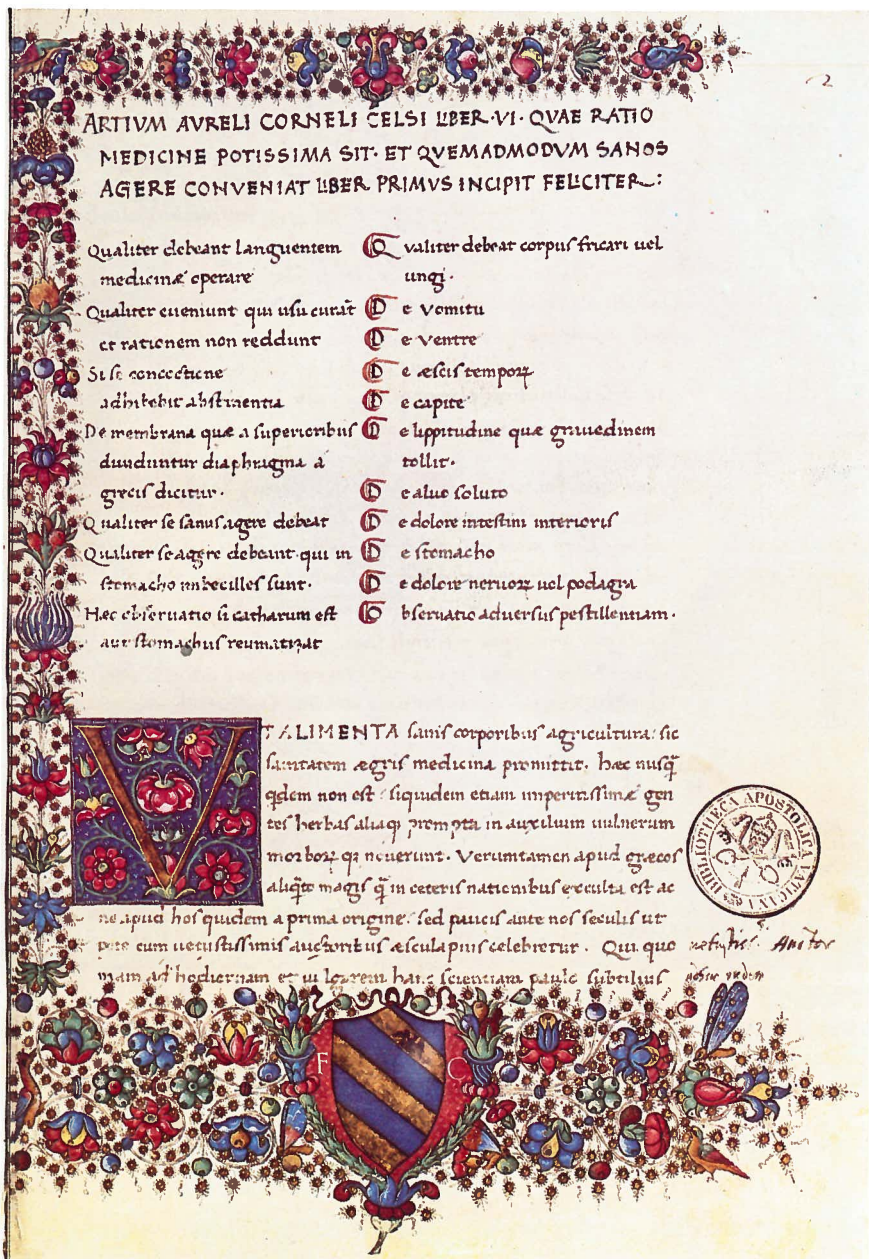 2
ARTIVM AVRELI CORNELI CELSI LIBER·VI· QVAE RATIO
MEDICINE POTISSIMA SIT· ET QVEMADMODVM SANOS
AGERE CONVENIAT LIBER PRIMVS INCIPIT FELICITER:
Qualiter debeant languentem
medicinæ operare
Qualiter eueniunt qui usu curant̃
et rationem non reddunt
Si se concoctione
adhibebit abstinentia
De membrana quæ a superioribus
diuiduntur diaphragma a
grecis dicitur·
Qualiter se sanus agere debeat
Qualiter se agere debeant qui in
stomacho imbecilles sunt·
Hæc obseruatio si catharum est
aut stomachus reumatizat
Qvaliter debeat corpus fricari uel
ungi·
De vomitu
De ventre
De æscis temporꝝ
De capite
De lippitudine quæ grauedinem
tollit·
De aluo soluto
De dolore intestini interioris
De stomacho
De dolore neruorꝝ uel podagra
Obseruatio aduersus pestillentiam·
VT ALIMENTA sanis corporibus agricultura: sic
sanitatem ægris medicina promittit· hæc nusq̃
qdem non est: siquidem etiam imperitissimæ gen
tes herbas aliaq; prompta in auxilium uulnerum
morborꝝ q; nouerunt· Verumtamen apud græcos
aliq̃to magis q̃ in ceteris nationibus exculta est ac
ne apud hos quidem a prima origine: sed paucis ante nos seculis ut
pote cum uetustissimis auctoribus æsculapius celebretur· Qui quo
niam adhodiernam et uulgarem hanc scientiam paulo subtilius
BIBLIOTHECA APOSTOLICA VATICANA
Auctor
F C